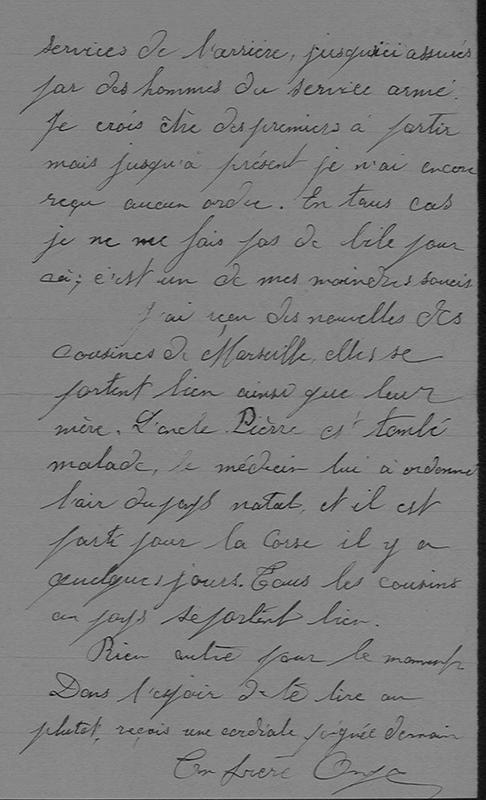 services de l'arrière, jusqu'ici assurés
par des hommes du service armé.
Je crois être des premiers à partir
mais jusqu'à présent je n'ai encore
reçu aucun ordre. En tous cas
je ne me fais pas de bile pour
ça; c'est un de mes moindres soucis.
J'ai reçu des nouvelles des
cousines de Marseille, elles se
portent bien ainsi que leur
mère. L'oncle Pierre est tombé
malade, le médecin lui a ordonné
l'air du pays natal, et il est
parti pour la Corse il y a
quelques jours. Tous les cousins
au pays se portent bien.
Rien autre pour le moment
Dans l'espoir de te lire au
plutot, reçois une cordiale poignée de main
Ton frère